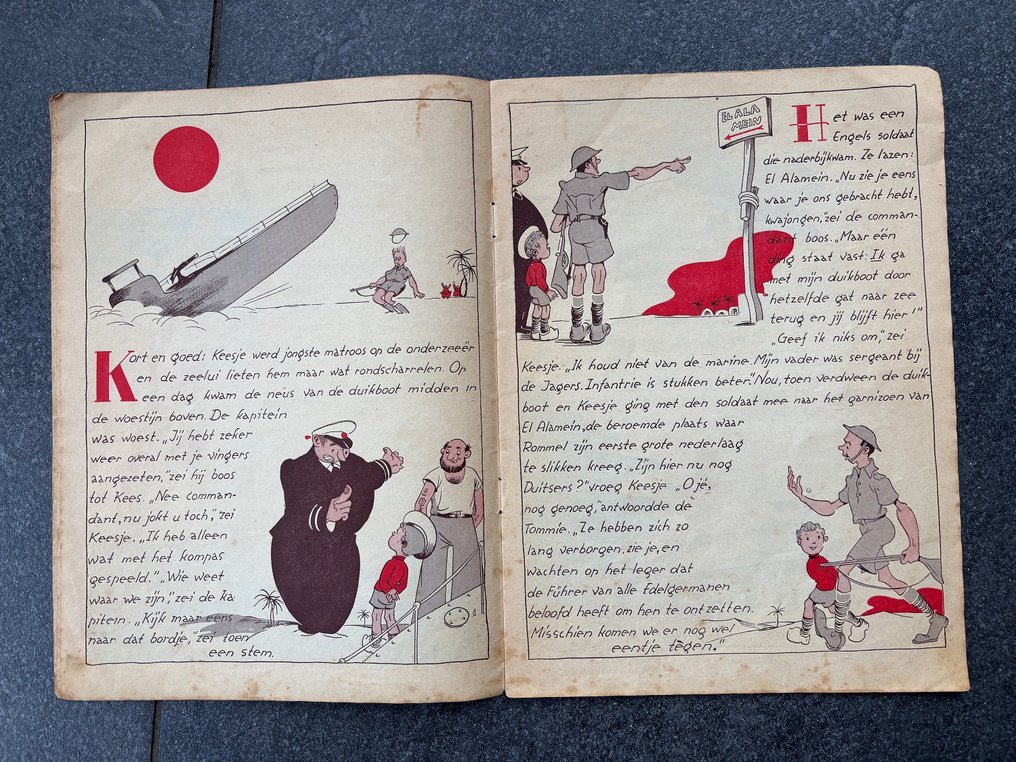 Kort en goed: Keesje werd jongste matroos op de onderzeeër
en de zeelui lieten hem maar wat rondscharrelen. Op
een dag kwam de neus van de duikboot midden in
de woestijn boven. De kapitein
was woest. „Jij hebt zeker
weer overal met je vingers
aangezeten,” zei hij boos
tot Kees. „Nee comman-
dant, nu jokt u toch,” zei
Keesje. „Ik heb alleen
wat met het kompas
gespeeld.” „Wie weet
waar we zijn,” zei de ka-
pitein. „Kijk maar eens
naar dat bordje,” zei toen
een stem.
EL ALA
MEIN
Het was een
Engels soldaat
die naderbijkwam. Ze lazen:
El Alamein. „Nu zie je eens
waar je ons gebracht hebt,
kwajongen,” zei de comman-
dant boos. „Maar eén
ding staat vast: Ik ga
met mijn duikboot door
hetzelfde gat naar zee
terug en jij blijft hier!”
„Geef ik niks om,” zei
Keesje. „Ik houd niet van de marine. Mijn vader was sergeant bij
de Jagers. Infantrie is stukken beter.” Nou, toen verdween de duik-
boot en Keesje ging met den soldaat mee naar het garnizoen van
El Alamein, de beroemde plaats waar
Rommel zijn eerste grote nederlaag
te slikken kreeg. „Zijn hier nu nog
Duitsers?” vroeg Keesje „O jé,
nog genoeg,” antwoordde de
Tommie. „Ze hebben zich zo
lang verborgen, zie je, en
wachten op het leger dat
de Führer van alle Edelgermanen
beloofd heeft om hen te ontzetten.
Misschien komen we er nog wel
eentje tégen.”